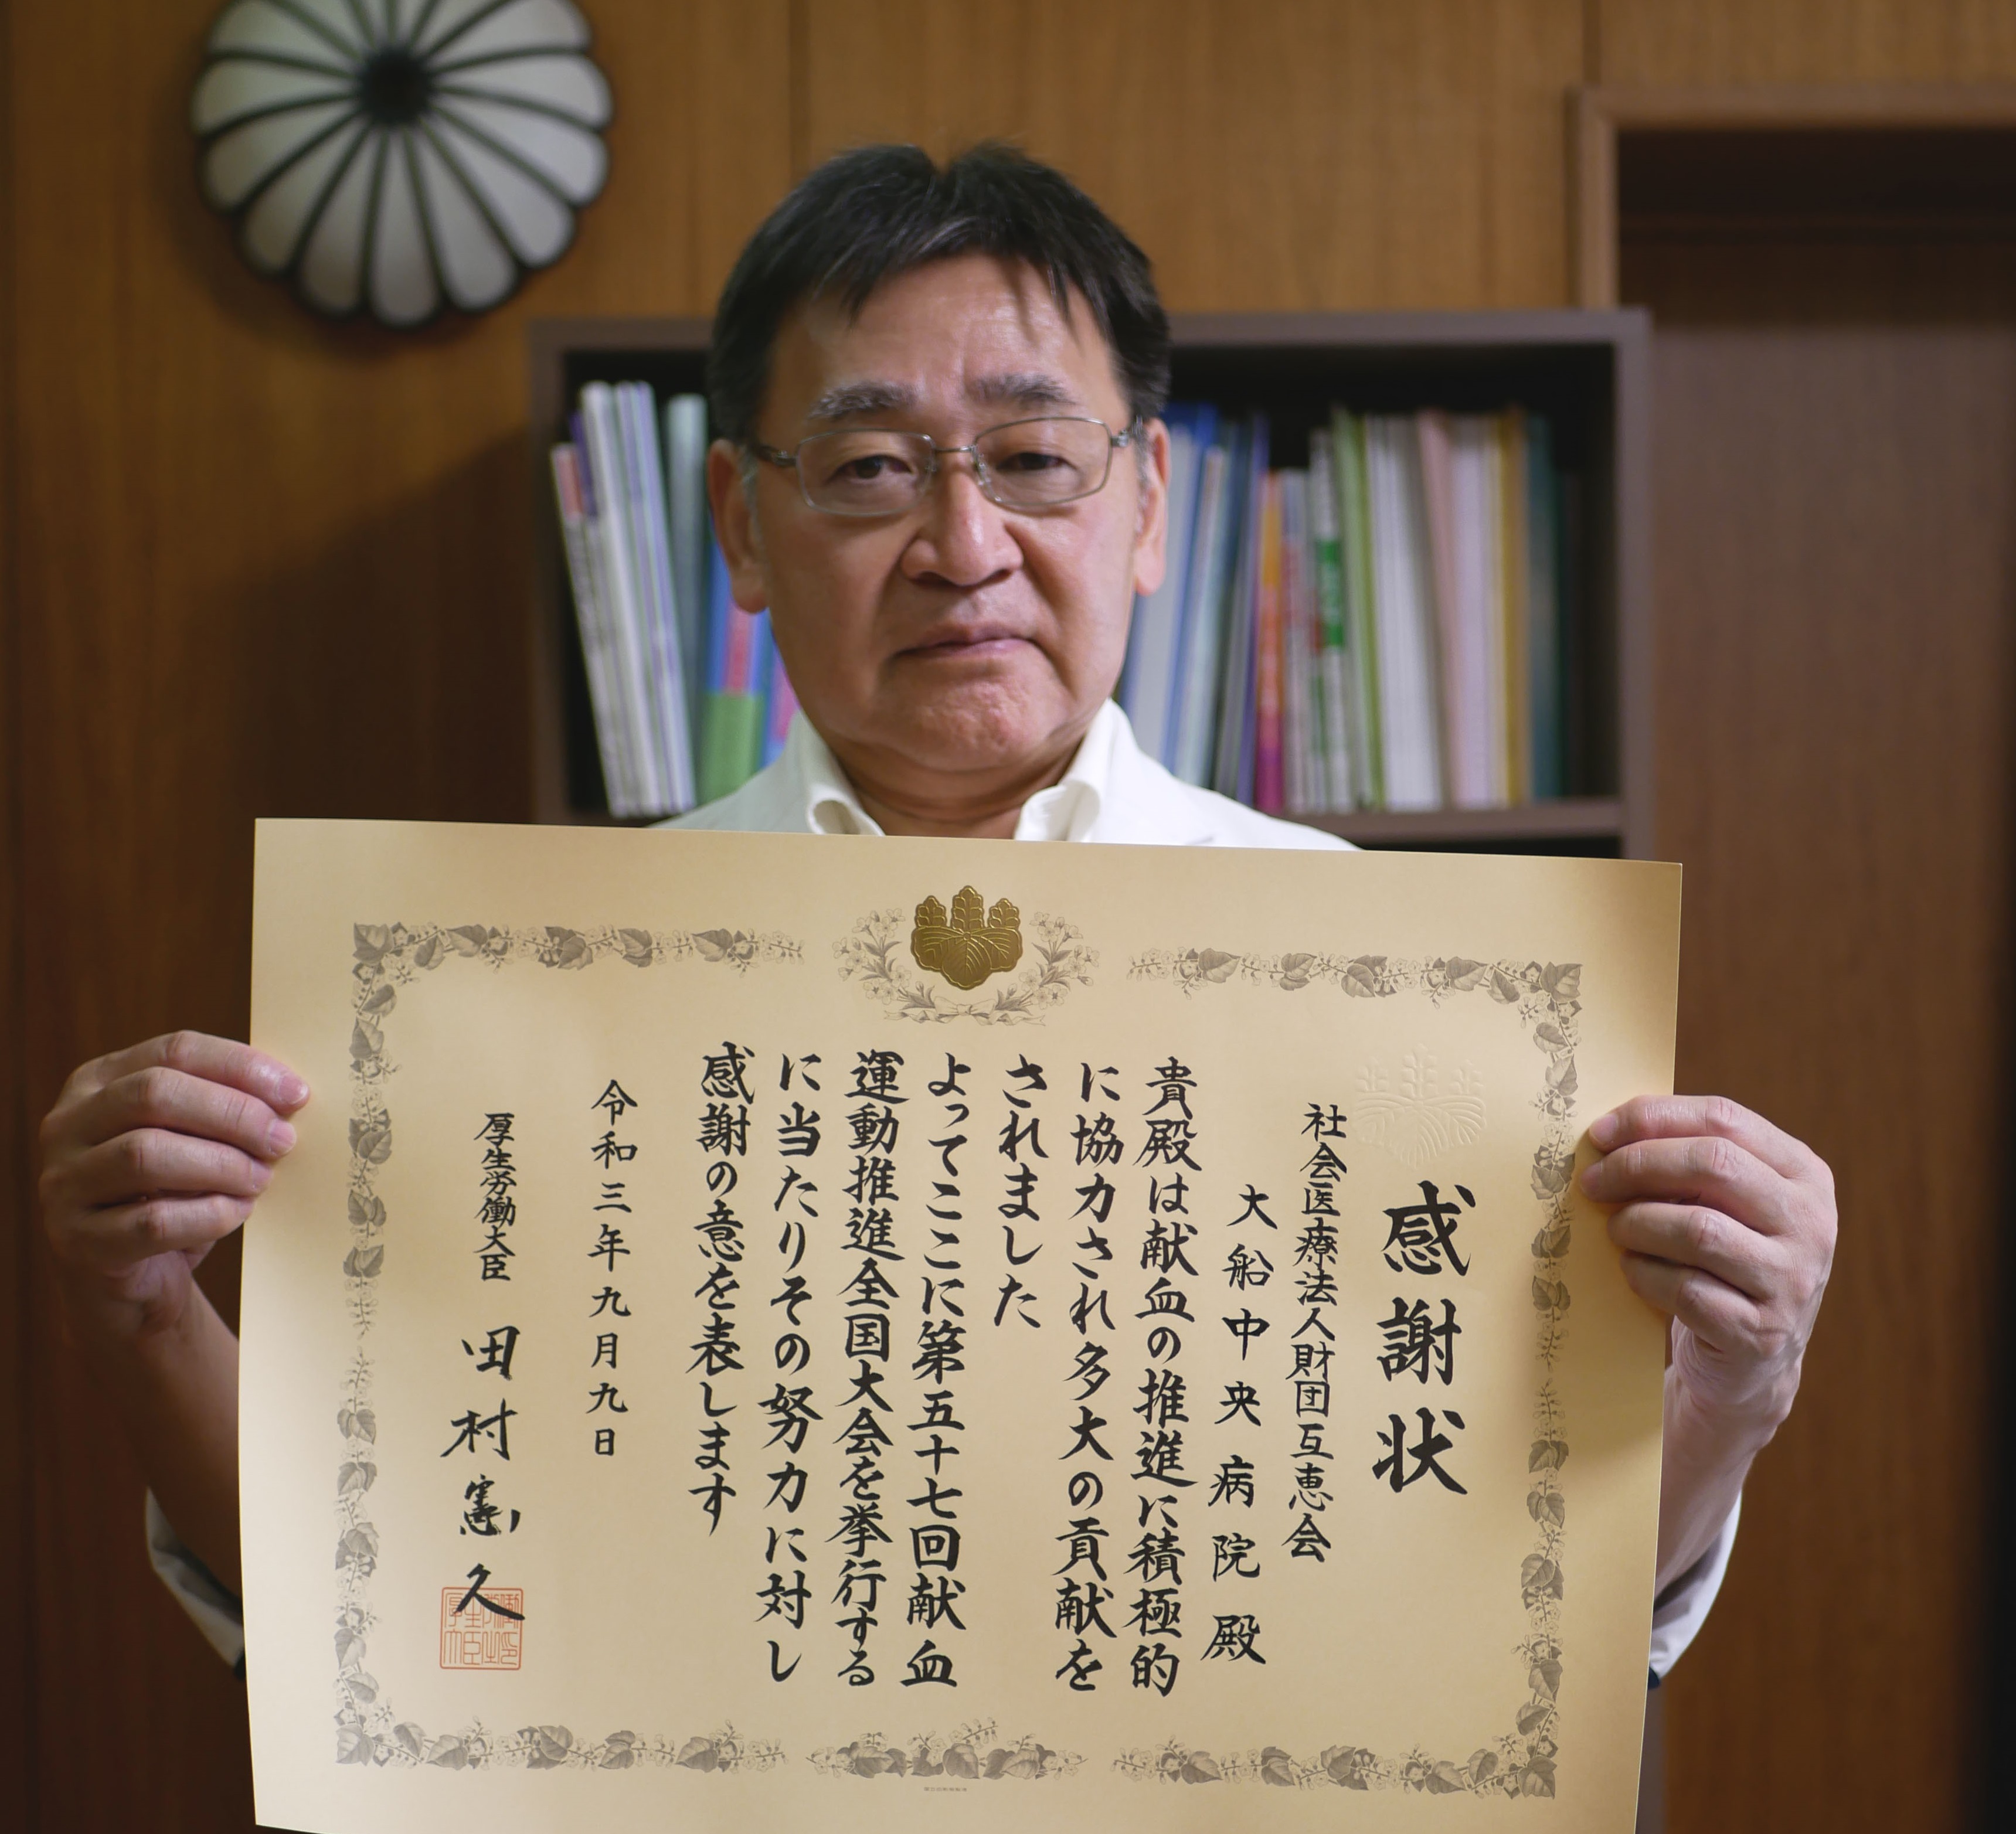 感謝状
社会医療法人財団互恵会
大船中央病院殿
貴殿は献血の推進に積極的
に協力され多大の貢献を
されました
よってここに第五十七回献血
運動推進全国大会を挙行する
に当たりその努力に対し
感謝の意を表します
令和三年九月九日
厚生労働大臣 田村憲久